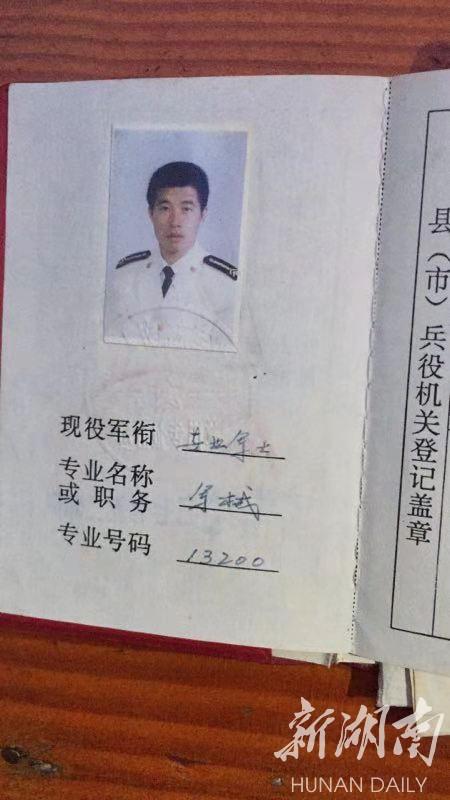 现役军衔 专业军士
专业名称
或职务 军械
专业号码 13200
县（市）兵役机关登记盖章
新湖南
HUNAN DAILY